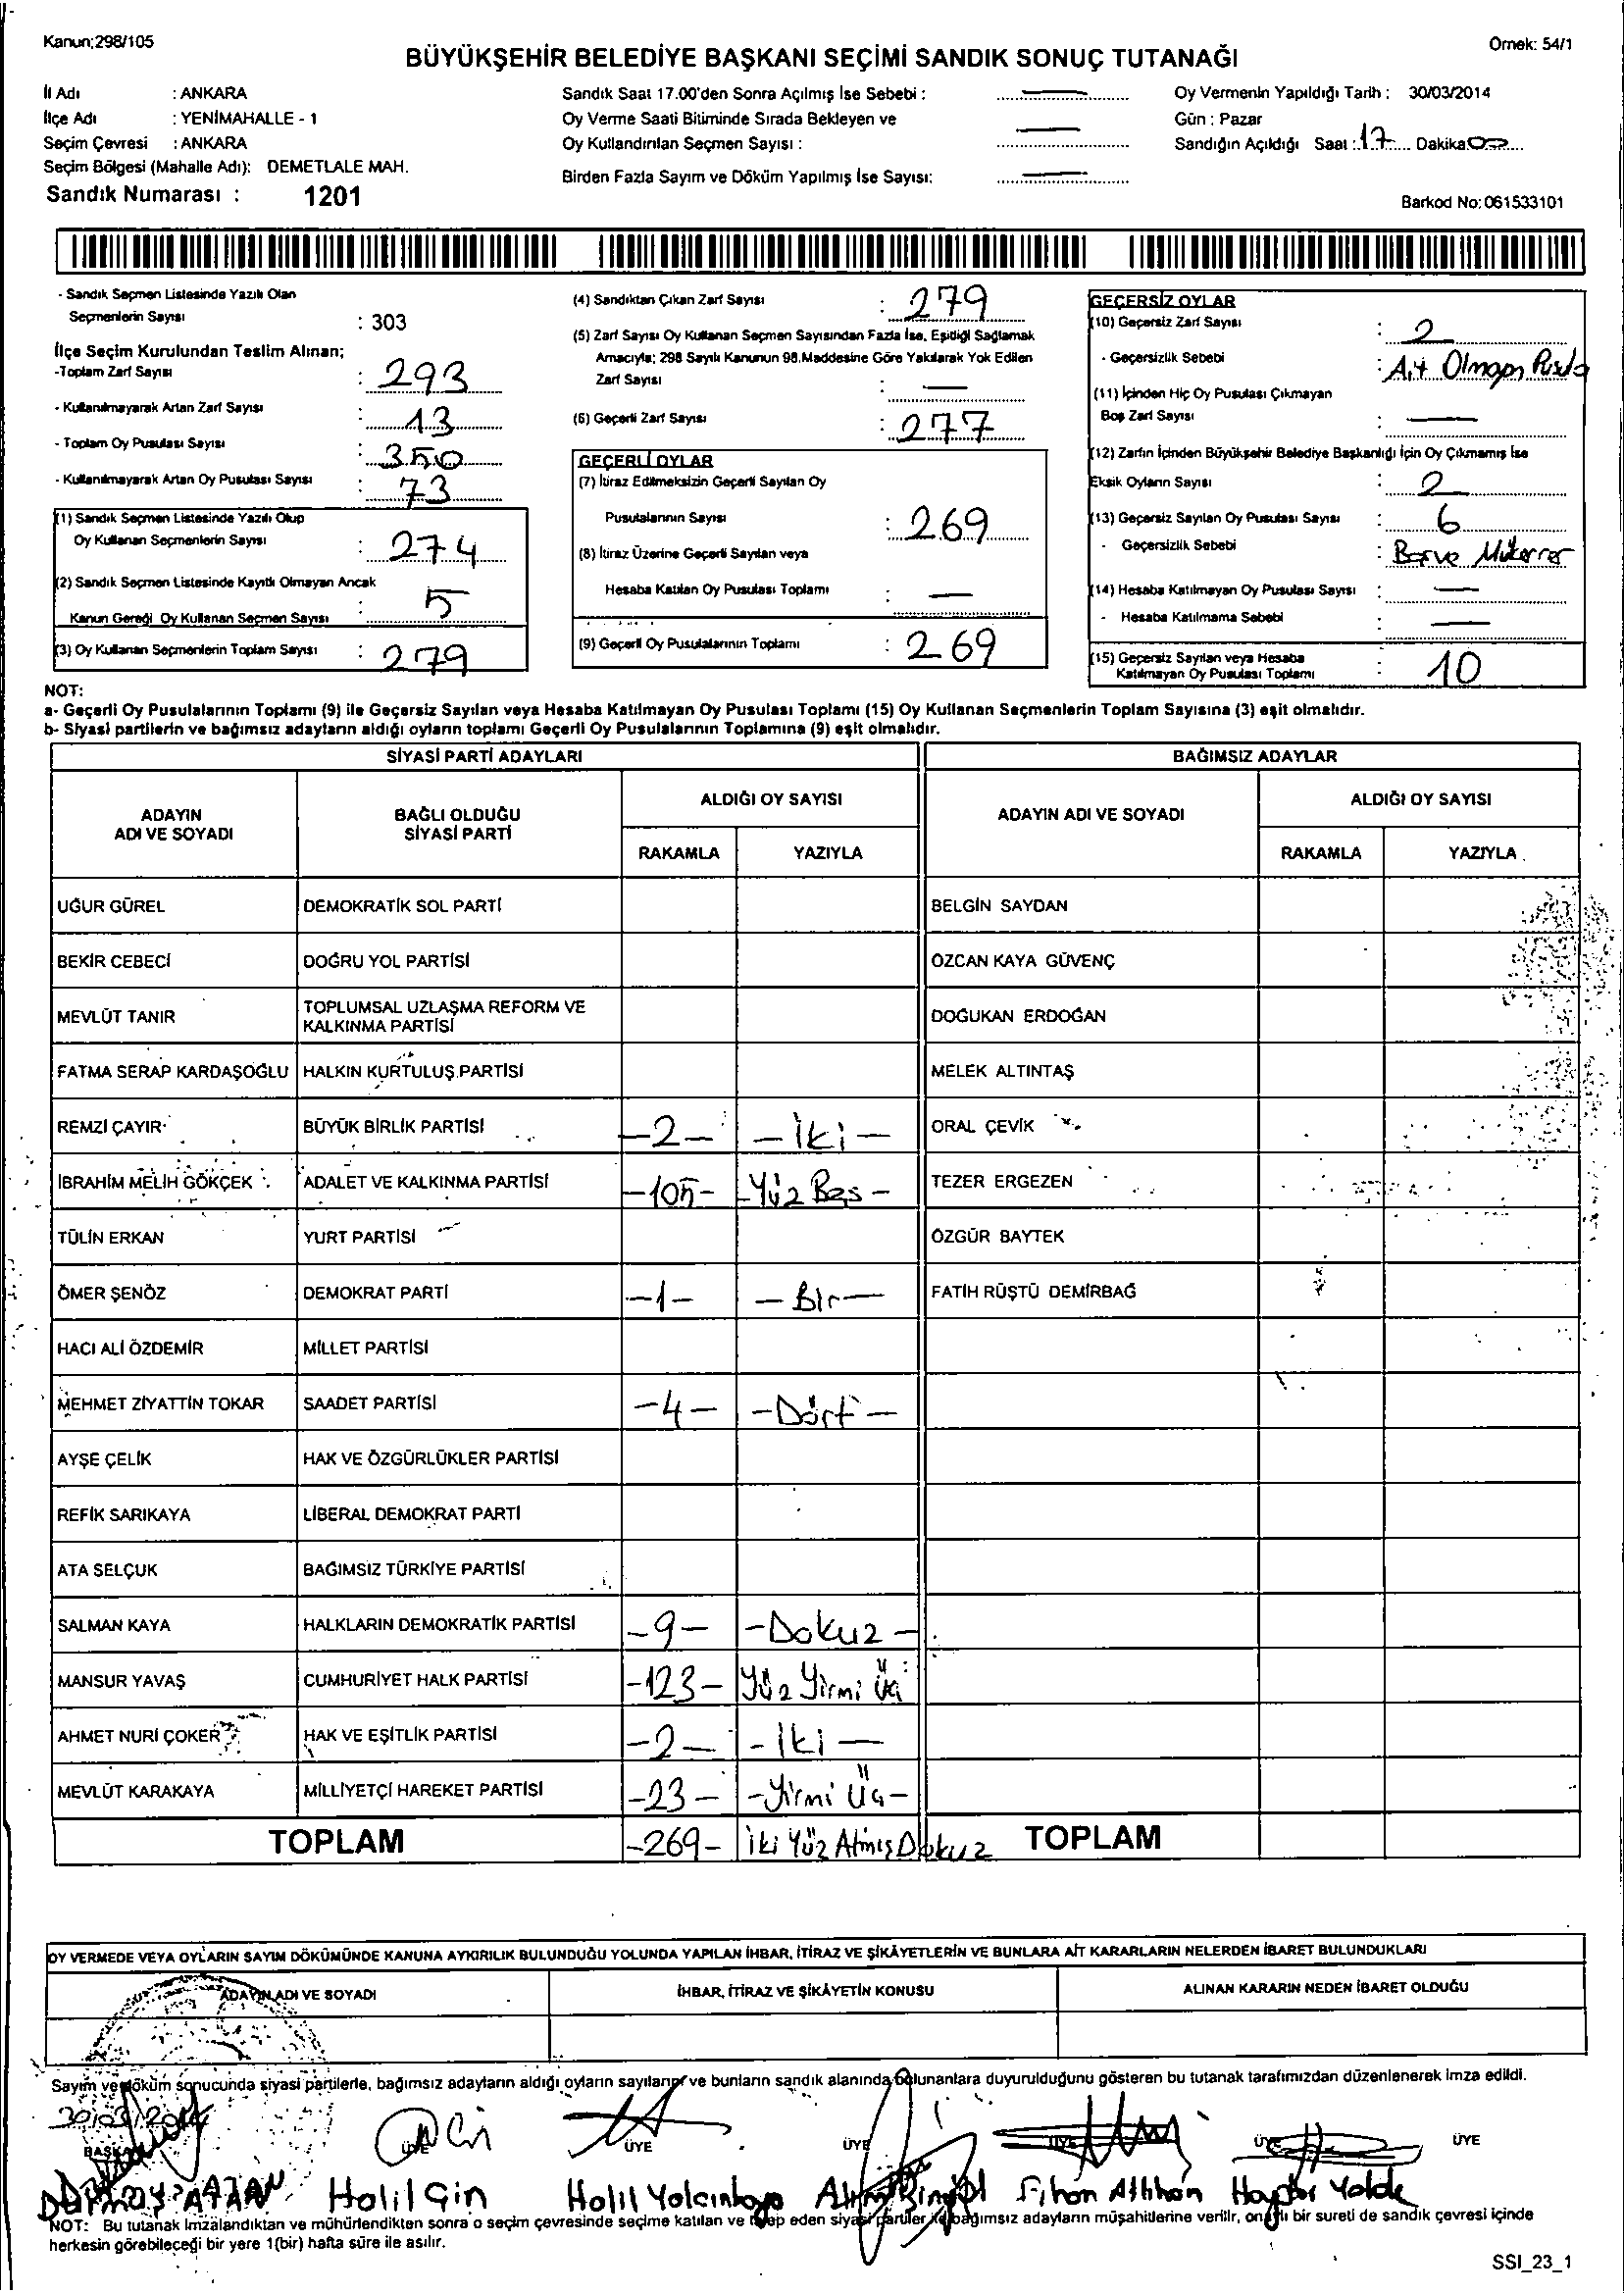 Kanun;298/105
Örnek: 54/1
BÜYÜKŞEHİR BELEDİYE BAŞKANI SEÇİMİ SANDIK SONUÇ TUTANAĞI
İl Adı : ANKARA
İlçe Adı : YENİMAHALLE - 1
Seçim Çevresi : ANKARA
Seçim Bölgesi (Mahalle Adı): DEMETLALE MAH.
Sandık Numarası : 1201
Sandık Saat 17.00'den Sonra Açılmış İse Sebebi : —
Oy Verme Saati Bitiminde Sırada Bekleyen ve
Oy Kullandırılan Seçmen Sayısı : —
Birden Fazla Sayım ve Döküm Yapılmış İse Sayısı: —
Oy Vermenin Yapıldığı Tarih : 30/03/2014
Gün : Pazar
Sandığın Açıldığı Saat : 17 Dakika 00
Barkod No: 061533101
- Sandık Seçmen Listesinde Yazılı Olan
Seçmenlerin Sayısı : 303
İlçe Seçim Kurulundan Teslim Alınan;
-Toplam Zarf Sayısı : 293
- Kullanılmayarak Artan Zarf Sayısı : 13
- Toplam Oy Pusulası Sayısı : 350
- Kullanılmayarak Artan Oy Pusulası Sayısı : 73
(1) Sandık Seçmen Listesinde Yazılı Olup
Oy Kullanan Seçmenlerin Sayısı : 274
(2) Sandık Seçmen Listesinde Kayıtlı Olmayan Ancak
Kanun Gereği Oy Kullanan Seçmen Sayısı : 5
(3) Oy Kullanan Seçmenlerin Toplam Sayısı : 279
(4) Sandıktan Çıkan Zarf Sayısı : 279
(5) Zarf Sayısı Oy Kullanan Seçmen Sayısından Fazla İse, Eşitliği Sağlamak
Amacıyla; 298 Sayılı Kanunun 98.Maddesine Göre Yakılarak Yok Edilen
Zarf Sayısı : —
(6) Geçerli Zarf Sayısı : 277
GEÇERLİ OYLAR
(7) İtiraz Edilmeksizin Geçerli Sayılan Oy
Pusulalarının Sayısı : 269
(8) İtiraz Üzerine Geçerli Sayılan veya
Hesaba Katılan Oy Pusulası Toplamı : —
(9) Geçerli Oy Pusulalarının Toplamı : 269
GEÇERSİZ OYLAR
(10) Geçersiz Zarf Sayısı : 2
- Geçersizlik Sebebi : Ait Olmayan Pusula
(11) İçinden Hiç Oy Pusulası Çıkmayan
Boş Zarf Sayısı : —
(12) Zarfın İçinden Büyükşehir Belediye Başkanlığı İçin Oy Çıkmamış İse
Eksik Oyların Sayısı : 2
(13) Geçersiz Sayılan Oy Pusulası Sayısı : 6
- Geçersizlik Sebebi : Boş ve Mükerrer
(14) Hesaba Katılmayan Oy Pusulası Sayısı : —
- Hesaba Katılmama Sebebi : —
(15) Geçersiz Sayılan veya Hesaba
Katılmayan Oy Pusulası Toplamı : 10
NOT:
a- Geçerli Oy Pusulalarının Toplamı (9) ile Geçersiz Sayılan veya Hesaba Katılmayan Oy Pusulası Toplamı (15) Oy Kullanan Seçmenlerin Toplam Sayısına (3) eşit olmalıdır.
b- Siyasi partilerin ve bağımsız adayların aldığı oyların toplamı Geçerli Oy Pusulalarının Toplamına (9) eşit olmalıdır.
SİYASİ PARTİ ADAYLARI
BAĞIMSIZ ADAYLAR
ADAYIN ADI VE SOYADI
BAĞLI OLDUĞU SİYASİ PARTİ
ALDIĞI OY SAYISI
RAKAMLA YAZIYLA
ADAYIN ADI VE SOYADI
ALDIĞI OY SAYISI
RAKAMLA YAZIYLA
UĞUR GÜREL DEMOKRATİK SOL PARTİ BELGİN SAYDAN
BEKİR CEBECİ DOĞRU YOL PARTİSİ ÖZCAN KAYA GÜVENÇ
MEVLÜT TANIR TOPLUMSAL UZLAŞMA REFORM VE KALKINMA PARTİSİ DOĞUKAN ERDOĞAN
FATMA SERAP KARDAŞOĞLU HALKIN KURTULUŞ PARTİSİ MELEK ALTINTAŞ
REMZİ ÇAYIR BÜYÜK BİRLİK PARTİSİ -2- -İki- ORAL ÇEVİK
İBRAHİM MELİH GÖKÇEK ADALET VE KALKINMA PARTİSİ -105- -Yüz Beş- TEZER ERGEZEN
TÜLİN ERKAN YURT PARTİSİ ÖZGÜR BAYTEK
ÖMER ŞENÖZ DEMOKRAT PARTİ -1- -Bir- FATİH RÜŞTÜ DEMİRBAĞ
HACI ALİ ÖZDEMİR MİLLET PARTİSİ
MEHMET ZİYATTİN TOKAR SAADET PARTİSİ -4- -Dört-
AYŞE ÇELİK HAK VE ÖZGÜRLÜKLER PARTİSİ
REFİK SARIKAYA LİBERAL DEMOKRAT PARTİ
ATA SELÇUK BAĞIMSIZ TÜRKİYE PARTİSİ
SALMAN KAYA HALKLARIN DEMOKRATİK PARTİSİ -9- -Dokuz-
MANSUR YAVAŞ CUMHURİYET HALK PARTİSİ -123- Yüz Yirmi Üç
AHMET NURİ ÇOKER HAK VE EŞİTLİK PARTİSİ -2- -İki-
MEVLÜT KARAKAYA MİLLİYETÇİ HAREKET PARTİSİ -23- -Yirmi Üç-
TOPLAM -269- İki Yüz Atmış Dokuz TOPLAM
OY VERMEDE VEYA OYLARIN SAYIM DÖKÜMÜNDE KANUNA AYKIRILIK BULUNDUĞU YOLUNDA YAPILAN İHBAR, İTİRAZ VE ŞİKÂYETLERİN VE BUNLARA AİT KARARLARIN NELERDEN İBARET BULUNDUKLARI
ADAYIN ADI VE SOYADI İHBAR, İTİRAZ VE ŞİKÂYETİN KONUSU ALINAN KARARIN NEDEN İBARET OLDUĞU
Sayım ve döküm sonucunda siyasi partilerle, bağımsız adayların aldığı oyların sayılarını ve bunların sandık alanında bulunanlara duyurulduğunu gösteren bu tutanak tarafımızdan düzenlenerek imza edildi.
30/03/2014
BAŞKAN ÜYE ÜYE ÜYE ÜYE ÜYE ÜYE
Durmuş ATAN Halil Gin Halil Yalçınkaya Bingöl Atlıhan
NOT: Bu tutanak imzalandıktan ve mühürlendikten sonra o seçim çevresinde seçime katılan ve talep eden siyasi partiler ve bağımsız adayların müşahitlerine verilir, onaylı bir sureti de sandık çevresi içinde
herkesin görebileceği bir yere 1(bir) hafta süre ile asılır.
SSI_23_1